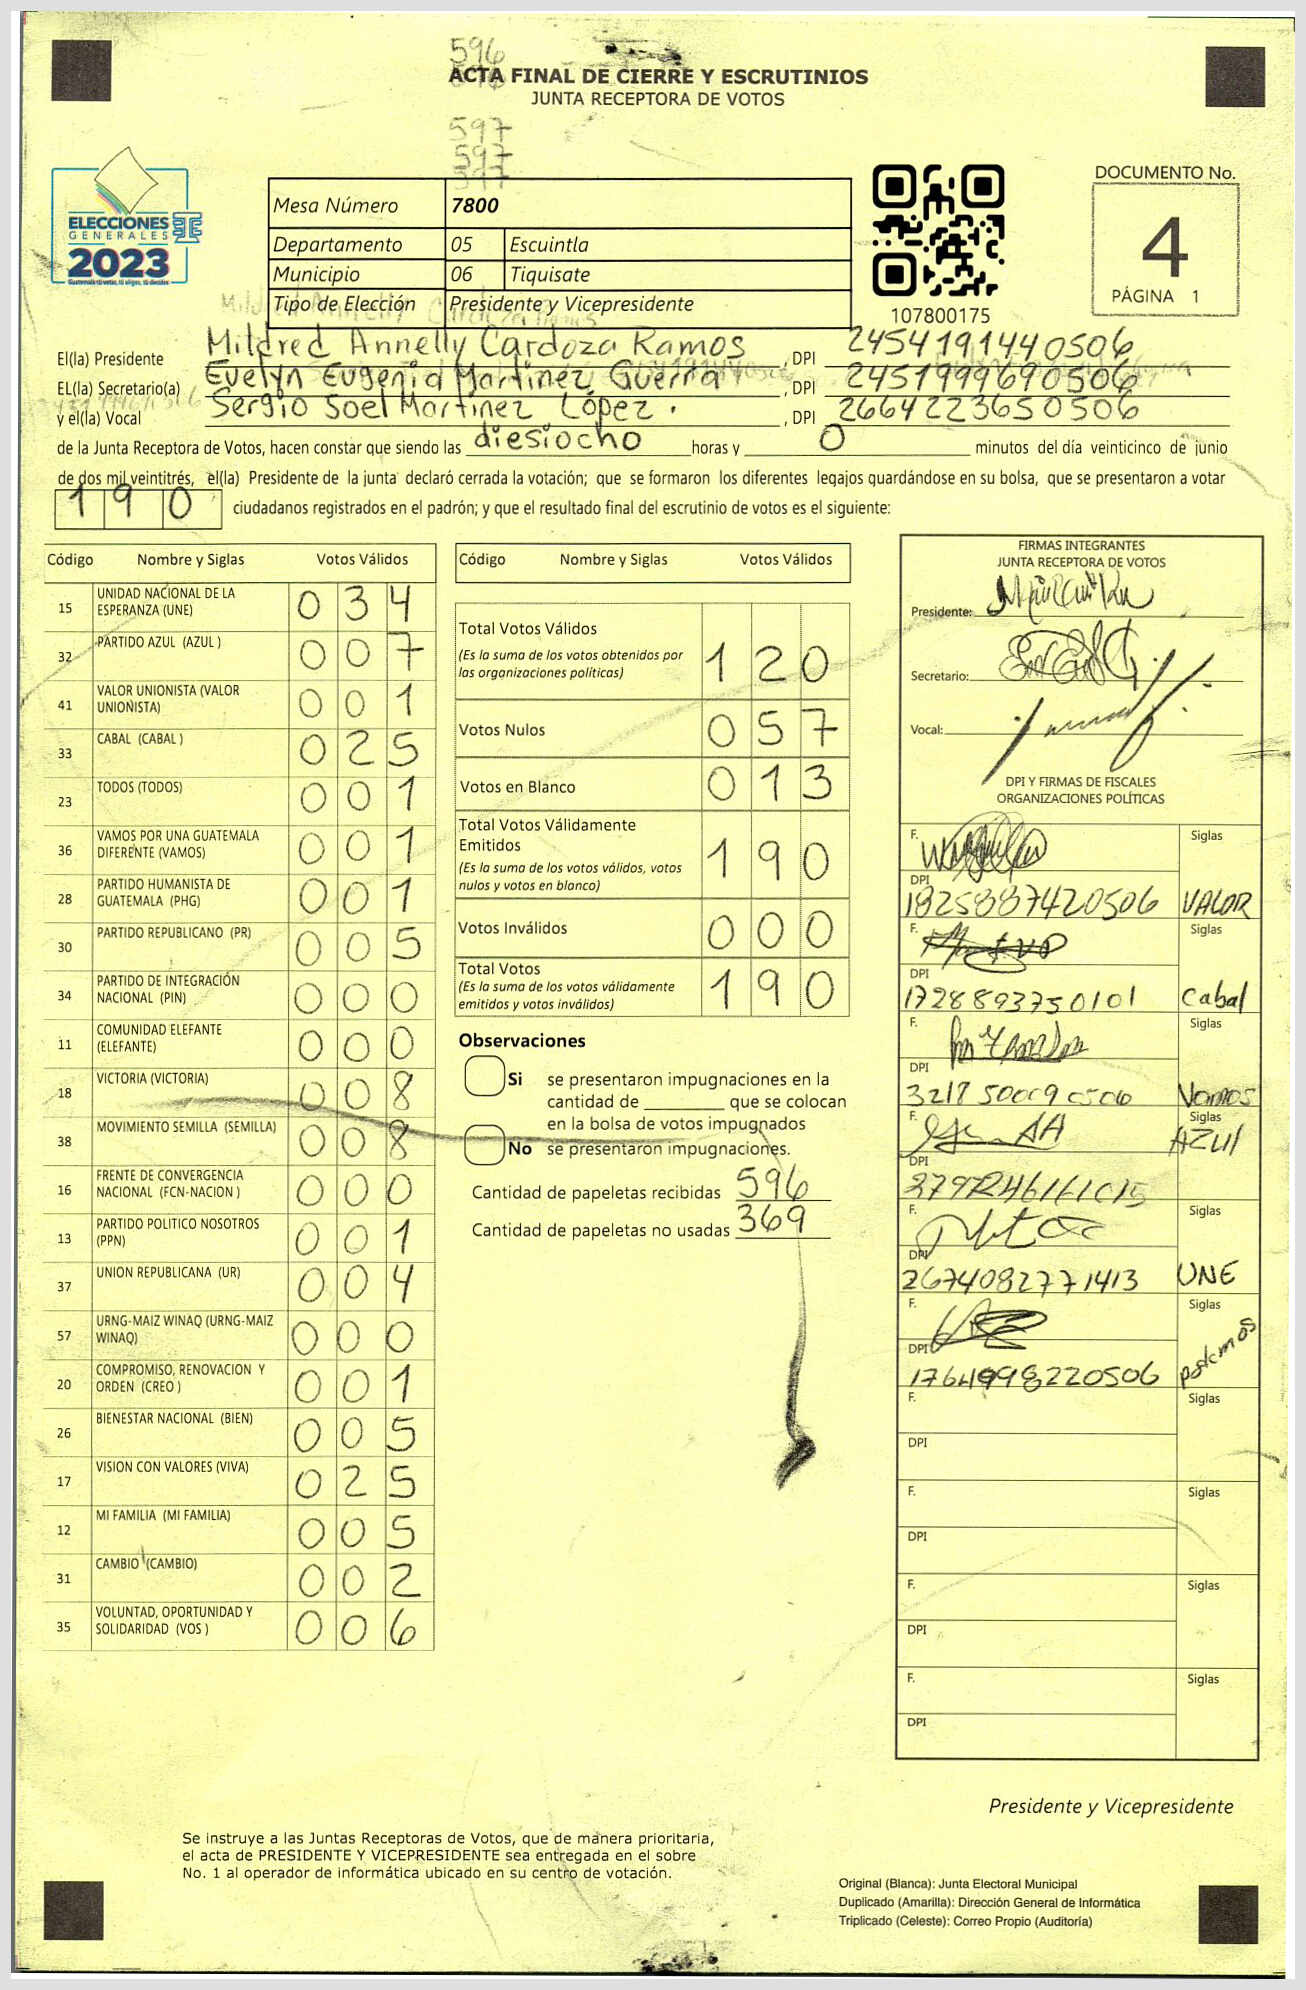 596
ACTA FINAL DE CIERRE Y ESCRUTINIOS
JUNTA RECEPTORA DE VOTOS
597
597
597
ELECCIONES
GENERALES
2023
Mesa Número 7800
Departamento 05 Escuintla
Municipio 06 Tiquisate
Tipo de Elección Presidente y Vicepresidente
107800175
DOCUMENTO No.
4
PÁGINA 1
El(la) Presidente Mildred Annelly Cardoza Ramos, DPI 2454191440506
EL(la) Secretario(a) Evelyn Eugenia Martinez Guerra, DPI 2451999690506
y el(la) Vocal Sergio Soel Martinez López., DPI 2664223650506
de la Junta Receptora de Votos, hacen constar que siendo las diesiocho horas y 0 minutos del día veinticinco de junio
de dos mil veintitrés, el(la) Presidente de la junta declaró cerrada la votación; que se formaron los diferentes legajos guardándose en su bolsa, que se presentaron a votar
190 ciudadanos registrados en el padrón; y que el resultado final del escrutinio de votos es el siguiente:
Código Nombre y Siglas Votos Válidos
15 UNIDAD NACIONAL DE LA ESPERANZA (UNE) 034
32 PARTIDO AZUL (AZUL ) 007
41 VALOR UNIONISTA (VALOR UNIONISTA) 001
33 CABAL (CABAL ) 025
23 TODOS (TODOS) 001
36 VAMOS POR UNA GUATEMALA DIFERENTE (VAMOS) 001
28 PARTIDO HUMANISTA DE GUATEMALA (PHG) 001
30 PARTIDO REPUBLICANO (PR) 005
34 PARTIDO DE INTEGRACIÓN NACIONAL (PIN) 000
11 COMUNIDAD ELEFANTE (ELEFANTE) 000
18 VICTORIA (VICTORIA) 008
38 MOVIMIENTO SEMILLA (SEMILLA) 008
16 FRENTE DE CONVERGENCIA NACIONAL (FCN-NACION ) 000
13 PARTIDO POLITICO NOSOTROS (PPN) 001
37 UNION REPUBLICANA (UR) 004
57 URNG-MAIZ WINAQ (URNG-MAIZ WINAQ) 000
20 COMPROMISO, RENOVACION Y ORDEN (CREO ) 001
26 BIENESTAR NACIONAL (BIEN) 005
17 VISION CON VALORES (VIVA) 025
12 MI FAMILIA (MI FAMILIA) 005
31 CAMBIO (CAMBIO) 002
35 VOLUNTAD, OPORTUNIDAD Y SOLIDARIDAD (VOS ) 006
Código Nombre y Siglas Votos Válidos
Total Votos Válidos 120
(Es la suma de los votos obtenidos por
las organizaciones políticas)
Votos Nulos 057
Votos en Blanco 013
Total Votos Válidamente
Emitidos 190
(Es la suma de los votos válidos, votos
nulos y votos en blanco)
Votos Inválidos 000
Total Votos 190
(Es la suma de los votos válidamente
emitidos y votos inválidos)
Observaciones
Si se presentaron impugnaciones en la
cantidad de ________ que se colocan
en la bolsa de votos impugnados
No se presentaron impugnaciones.
Cantidad de papeletas recibidas 596
Cantidad de papeletas no usadas 369
FIRMAS INTEGRANTES
JUNTA RECEPTORA DE VOTOS
Presidente:
Secretario:
Vocal:
DPI Y FIRMAS DE FISCALES
ORGANIZACIONES POLÍTICAS
F. Siglas
DPI
1825887420506 VALOR
F. Siglas
DPI
1728893750101 Cabal
F. Siglas
DPI
3217500090506 Vamos
F. Siglas
AZUl
DPI
F. Siglas
DPI
2674082771413 UNE
F. Siglas
DPI
1764998220506 podemos
F. Siglas
DPI
F. Siglas
DPI
F. Siglas
DPI
F. Siglas
DPI
Presidente y Vicepresidente
Se instruye a las Juntas Receptoras de Votos, que de manera prioritaria,
el acta de PRESIDENTE Y VICEPRESIDENTE sea entregada en el sobre
No. 1 al operador de informática ubicado en su centro de votación.
Original (Blanca): Junta Electoral Municipal
Duplicado (Amarilla): Dirección General de Informática
Triplicado (Celeste): Correo Propio (Auditoría)